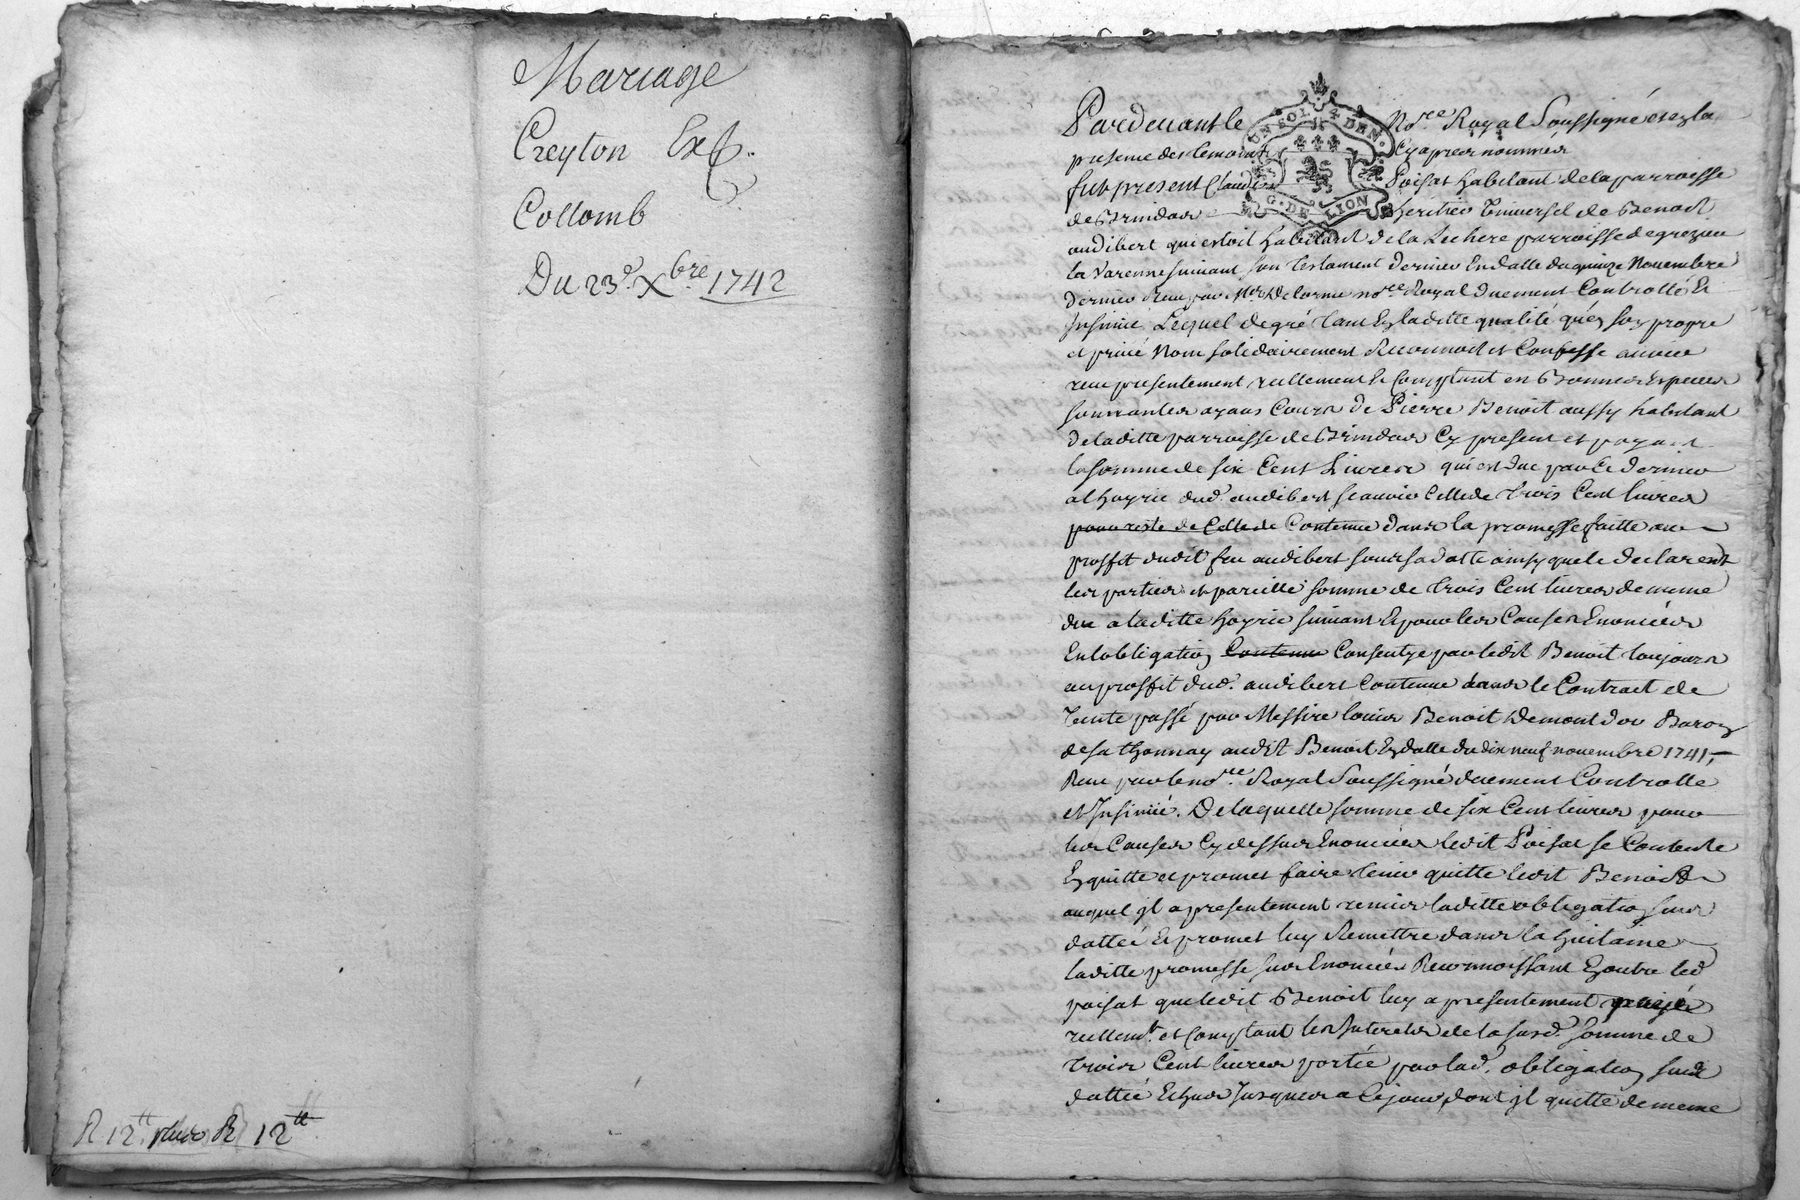 Mariage
Creyton Ex
Collomb
Du 23e Xbre 1742
R 12tt plus R 12tt
UN SOL 4 DEN.
G. DE LION
Pardevant le Nore Royal Soussigné et en la
presence des temoins Cy apres nommés
fut present Claude Poisat habitant de la parroisse
de Brindas heritier Universel de Benoit
audibert qui estoit habitant de la Lechere parroisse de grezieu
la Varenne suivant son testament dernier en datte du quinze Novembre
dernier Reçu par Me Delorme nore Royal duement Controllé Et
Insinué. Lequel de gré tant En laditte qualité qu'en son propre
et privé Nom solidairement Reconnoit et Confesse avoir
reçu presentement reellement & Comptant en Bonnes Especes
sonnantes ayans Cours de Pierre Benoit aussy habitant
de laditte parroisse de Brindas Cy present et payant
la somme de six Cent Livres qui est due par Ce dernier
a lhoyrie dud. audibert scavoir Celle de trois Cent livres
pour reste de Celle de Contenue dans la promesse faitte au
proffit dudit feu audibert sous sa datte ainsy que le declarent
les parties et pareille somme de trois Cent livres de meme
due a laditte hoyrie suivant Et pour les Causes Enoncées
En lobligation Contenue Consentye par ledit Benoit toujours
au proffit dud. audibert Contenue dans le Contract de
Vente passé par Messire louis Benoit Demont dor Baron
de sathonnay audit Benoit En datte du dix neuf novembre 1741,
Reçu par le nore Royal Soussigné duement Controlle
et Insinué. De laquelle somme de six Cent livres pour
les Causes Cy dessus Enoncées ledit Poisat se Contente
En quitte et promet faire tenir quitte ledit Benoit
auquel jl a presentement remis laditte obligation sus
dattée Et promet luy Remettre dans la huitaine
laditte promesse sus Enoncée Reconnoissant En outre led
poisat que ledit Benoit luy a presentement payé
reellemt et Comptant les Interets de la susd. somme de
trois Cent livres portée par lad. obligation sus
dattée Echus Jusques a Ce jour, dont jl quitte de meme